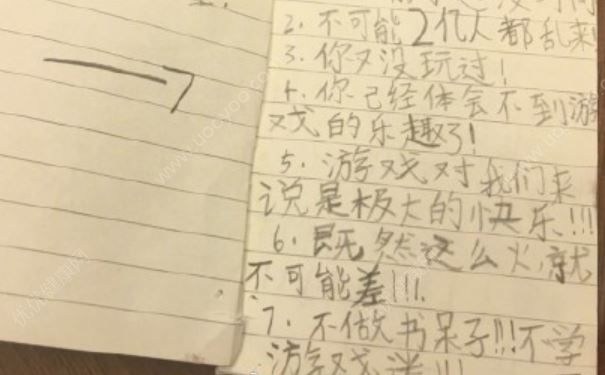 2. 不可能2亿人都乱来!
3. 你又没玩过!
4. 你已经体会不到游
戏的乐趣了!
5. 游戏对我们来
说是极大的快乐!!!
6. 既然这么火,就
不可能差!!!
7. 不做书呆子!!!不学
游戏迷!!!